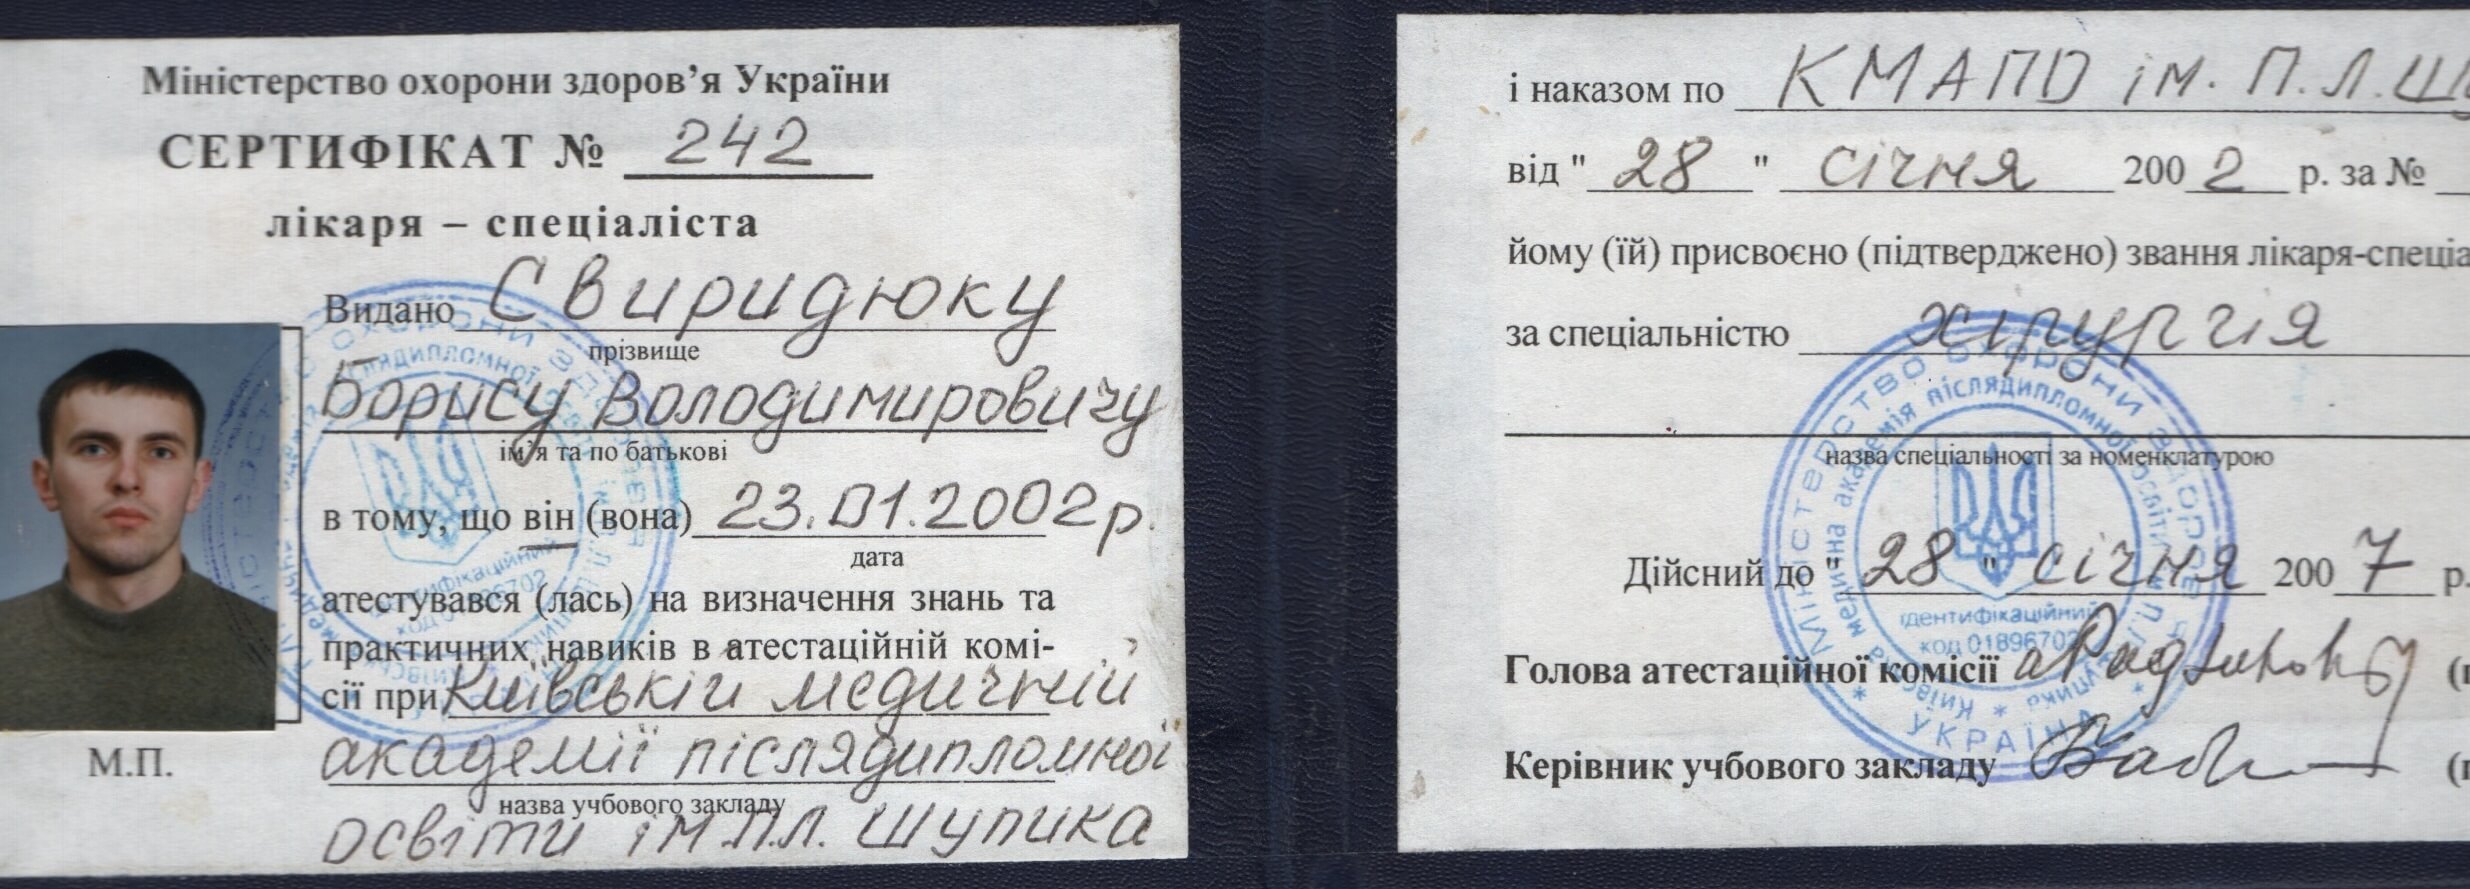 Міністерство охорони здоров’я України
СЕРТИФІКАТ № 242
лікаря – спеціаліста
Видано Свиридюку
прізвище
Борису Володимировичу
ім’я та по батькові
в тому, що він (вона) 23.01.2002р.
дата
атестувався (лась) на визначення знань та
практичних навиків в атестаційній комі-
сії при Київській медичній
академії післядипломної
назва учбового закладу
освіти ім.П.Л. Шупика
М.П.
і наказом по КМАПО ім. П.Л.
від "28" січня 2002 р. за №
йому (їй) присвоєно (підтверджено) звання лікаря-спеціа
за спеціальністю хірургія
назва спеціальності за номенклатурою
Дійсний до "28" січня 2007 р.
Голова атестаційної комісії
Керівник учбового закладу
Міністерство охорони здоров’я
УКРАЇНА
медична академія післядипломної освіти
ідентифікаційний
код 01896702